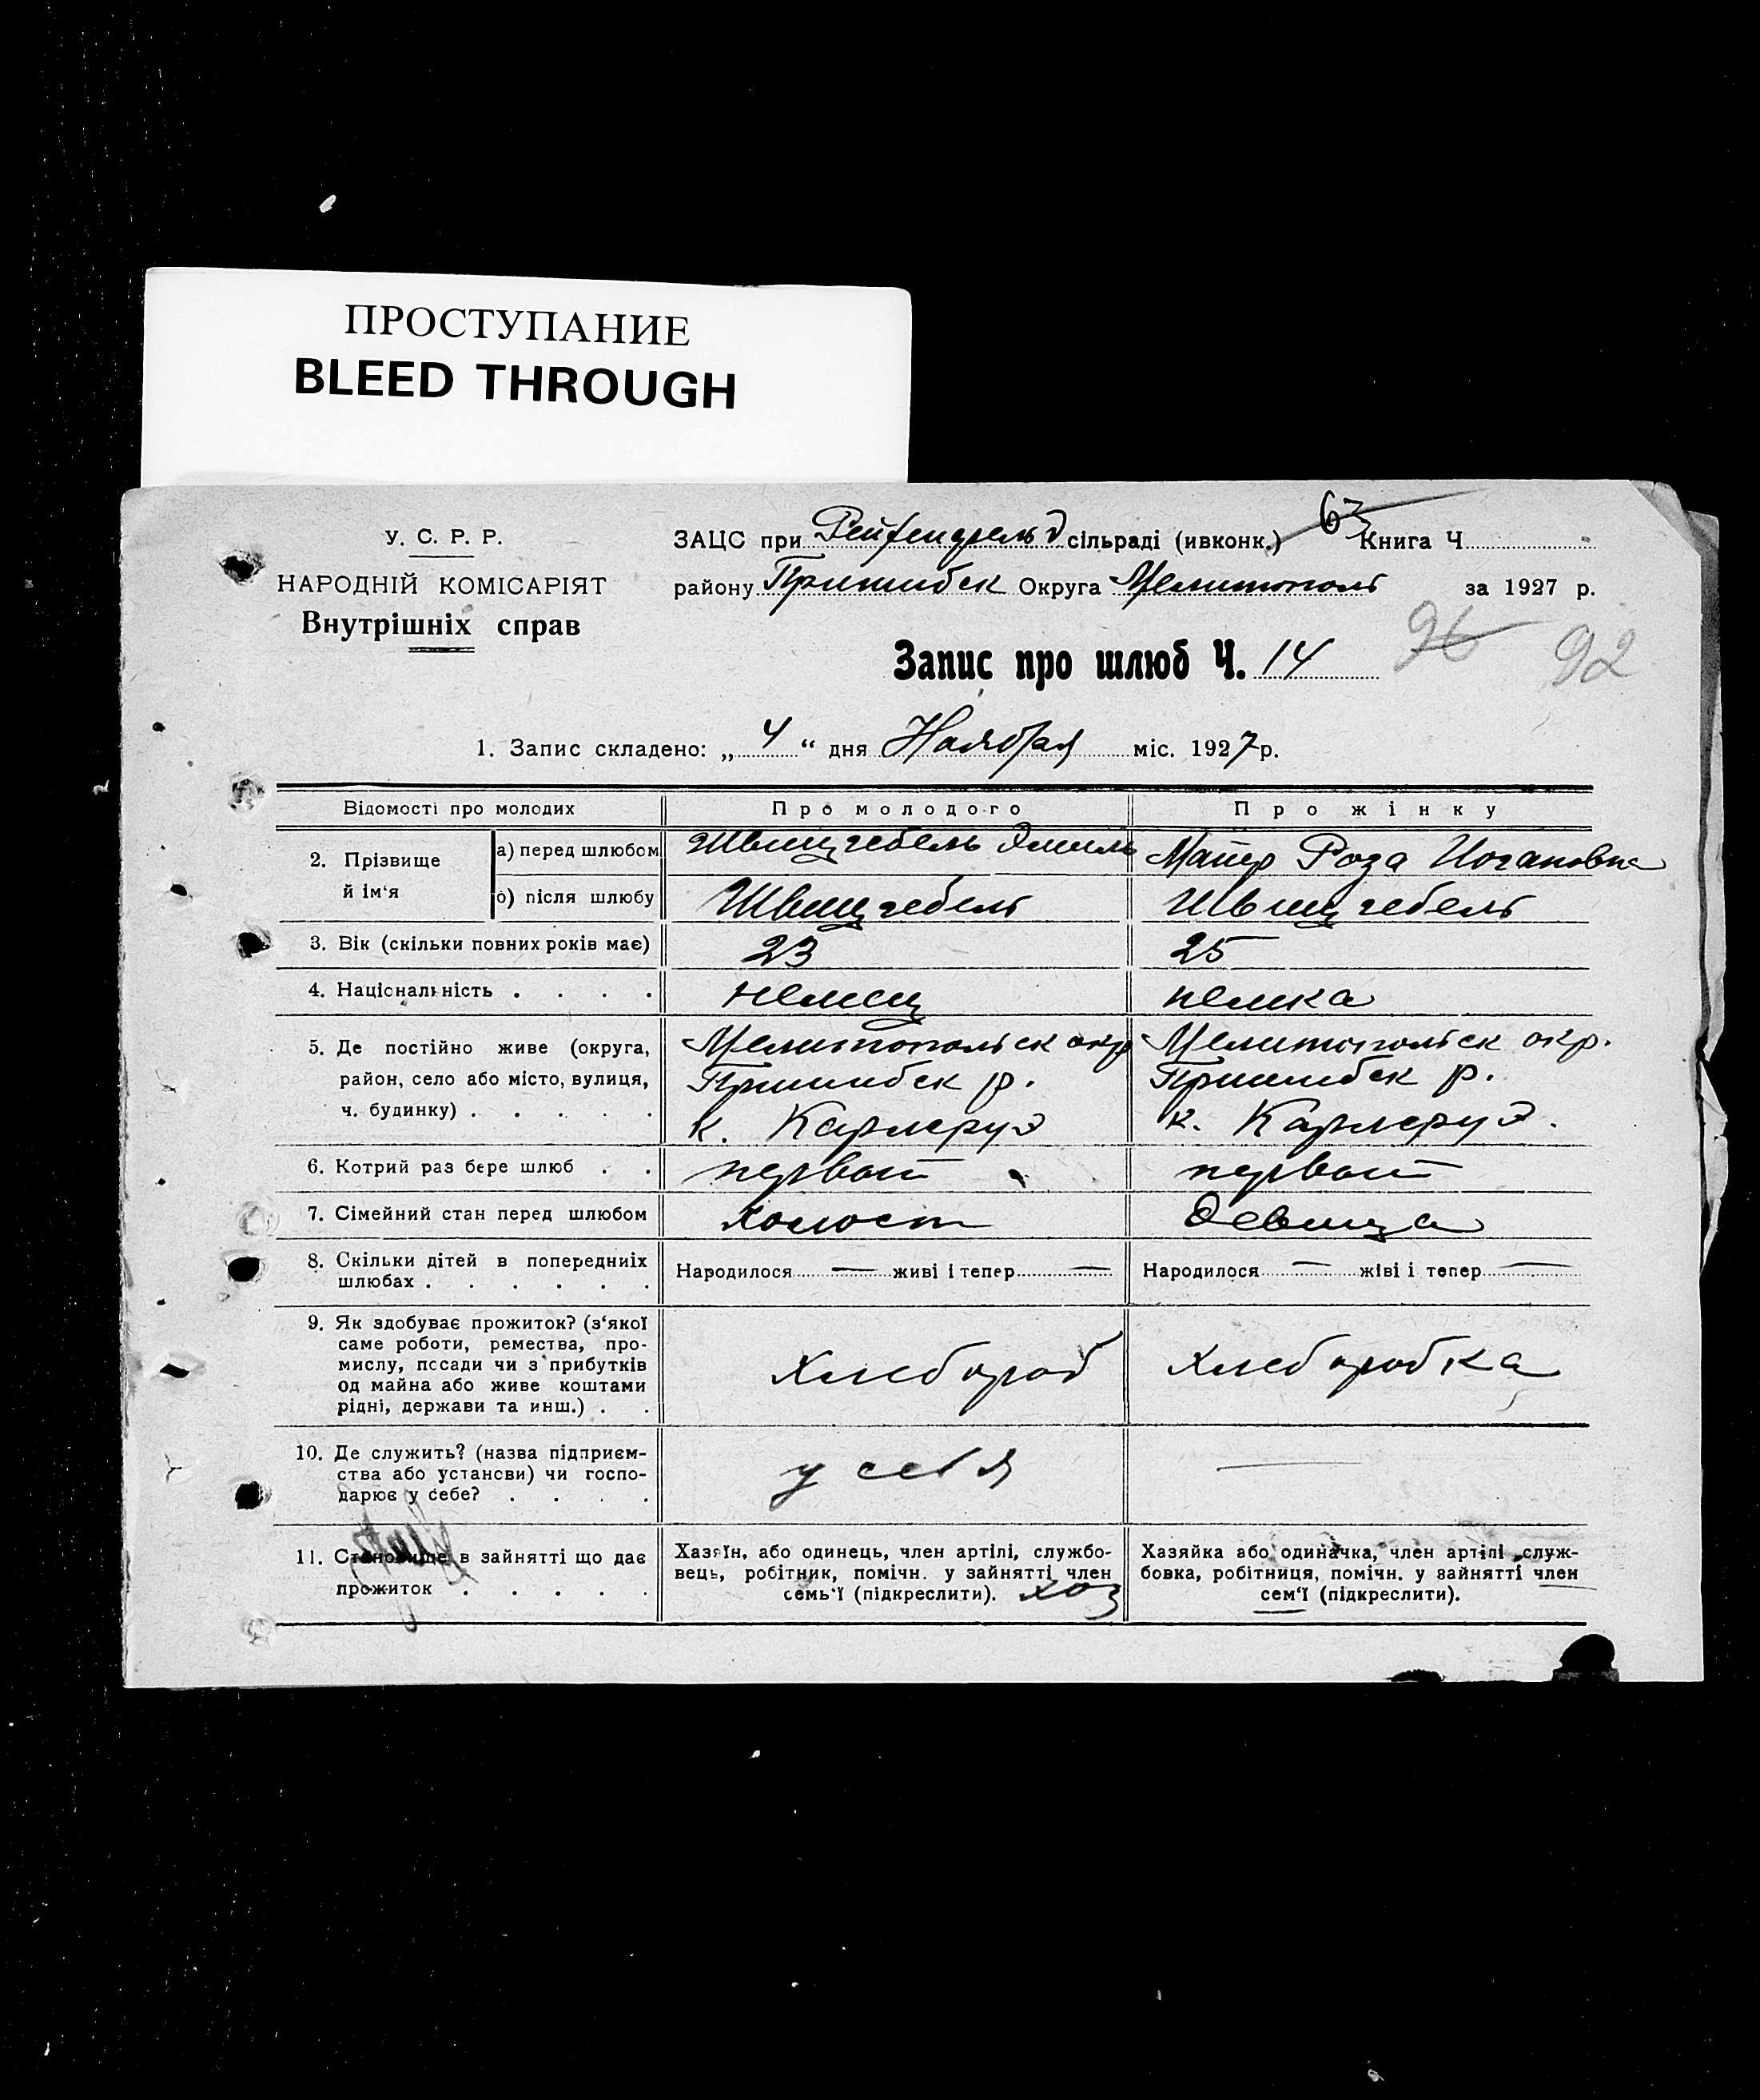 ПРОСТУПАНИЕ
BLEED THROUGH
У. С. Р. Р.
НАРОДНІЙ КОМІСАРІЯТ
Внутрішніх справ
ЗАЦС при Рейхенфельд сільраді (ивконк.) 63 Книга Ч.
району Пришибск Округа Мелитополь за 1927 р.
Запис про шлюб Ч. 14 96 92
1. Запис складено: „ 4 “ дня Ноября міс. 1927 р.
Відомості про молодих Про молодого Про жінку
2. Прізвище й ім‘я
а) перед шлюбом Швицгебель Эмиль Майер Роза Иогановна
б) після шлюбу Швицгебель Швицгебель
3. Вік (скільки повних років має) 23 25
4. Національність . . . . немец немка
5. Де постійно живе (округа, Мелитопольск окр Мелитопольск окр.
район, село або місто, вулиця, Пришибск р. Пришибск р.
ч. будинку) . . . . . к. Карлсруэ к. Карлсруэ.
6. Котрий раз бере шлюб . . первый первый
7. Сімейний стан перед шлюбом холост девица
8. Скільки дітей в попередниіх
шлюбах . . . . . . Народилося — живі і тепер — Народилося — жіві і тепер —
9. Як здобуває прожиток? (з‘якої
саме роботи, ремества, про-
мислу, посади чи з прибутків
од майна або живе коштами
рідні, держави та инш.) . . Хлебороб Хлеборобка
10. Де служить? (назва підприєм-
ства або установи) чи госпо-
дарює у себе? . . . . у себя —
11. Становище в зайнятті що дає
прожиток . . . . .
Хазяїн, або одинець, член артілі, службо-
вець, робітник, помічн. у зайнятті член
семь‘ї (підкреслити). хоз
Хазяйка або одиначка, член артілі служ-
бовка, робітниця, помічн. у зайнятті член
сем‘ї (підкреслити).